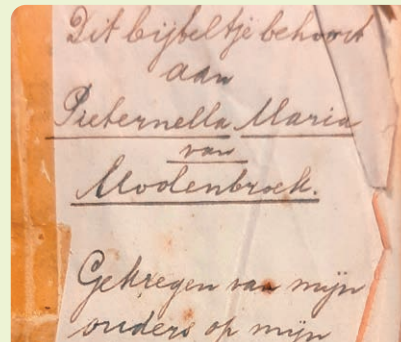 Dit bijbeltje behoort
aan
Pieternella Maria
van
Modenbroek.
Gekregen van mijn
ouders op mijn